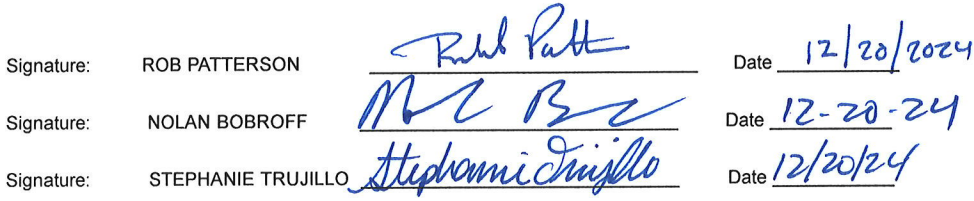 Signature: ROB PATTERSON Rob Patt Date 12/20/2024
Signature: NOLAN BOBROFF Date 12-20-24
Signature: STEPHANIE TRUJILLO Stephanie Trujillo Date 12/20/24